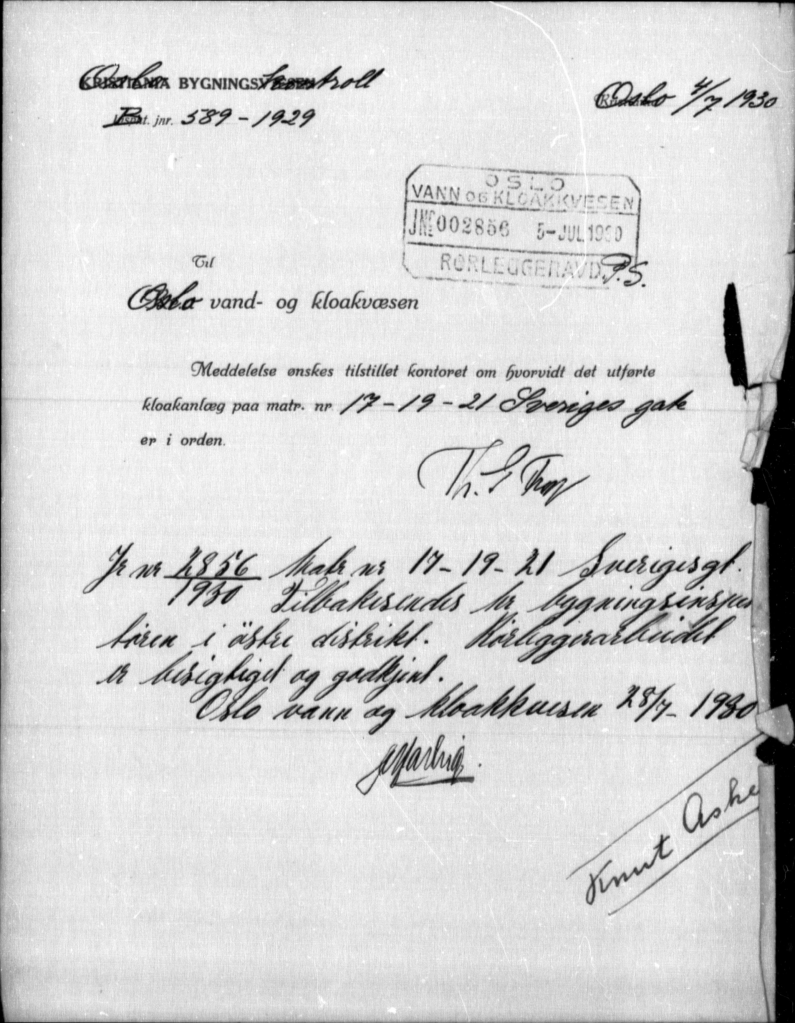 Oslo BYGNINGSkontroll
Oslo 4/7 1930
B. jnr. 589-1929
OSLO
VANN OG KLOAKKVESEN
JNR 002856 5-JUL 1930
RØRLEGGERAVD. P.S.
Til
Oslo vand- og kloakvæsen
Meddelelse ønskes tilstillet kontoret om hvorvidt det utførte
kloakanlæg paa matr. nr 17-19-21 Sveriges gate
er i orden.
Th. G
Jr nr 2856/1930 Matr nr 17-19-21 Sverigesgt.
Tilbakesendes hr. bygningsinspek
tøren i östre distrikt. Rörleggerarbeidet
er besigtiget og godkjent.
Oslo vann og kloakkvesen 28/7-1930
Knut Aske